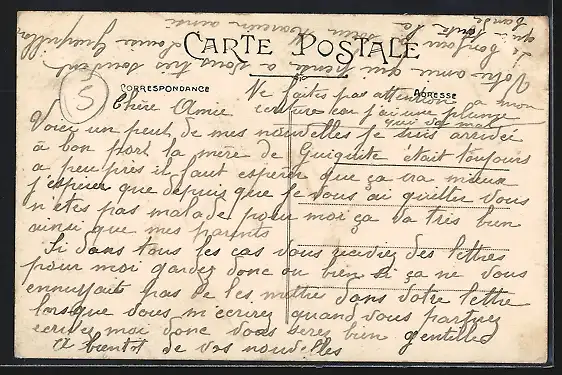 CARTE POSTALE
CORRESPONDANCE
ADRESSE
Ne faites pas attention a mon
ecriture car j'ai une plume
qui va mal
5
Chère Amie
Voici un peut de mes nouvelles je suis arrivée
à bon port la mère de Guiguite était toujours
a peu près il faut esperer que ça ira mieux
j'espere que depuis que je vous ai quitter vous
n'etes pas malade pour moi ça va très bien
ainsi que mes parents
Si dans tous les cas vous receviez des lettres
pour moi gardez donc ou bien si ça ne vous
ennuyait pas de les mettres dans votre lettre
lorsque vous m'ecrirez quand vous partirez
ecrivez moi donc vous serez bien gentilles
A bientot de vos nouvelles
Votre amie qui pense a vous très souvent
Le bonjour a
qui toute la
bande